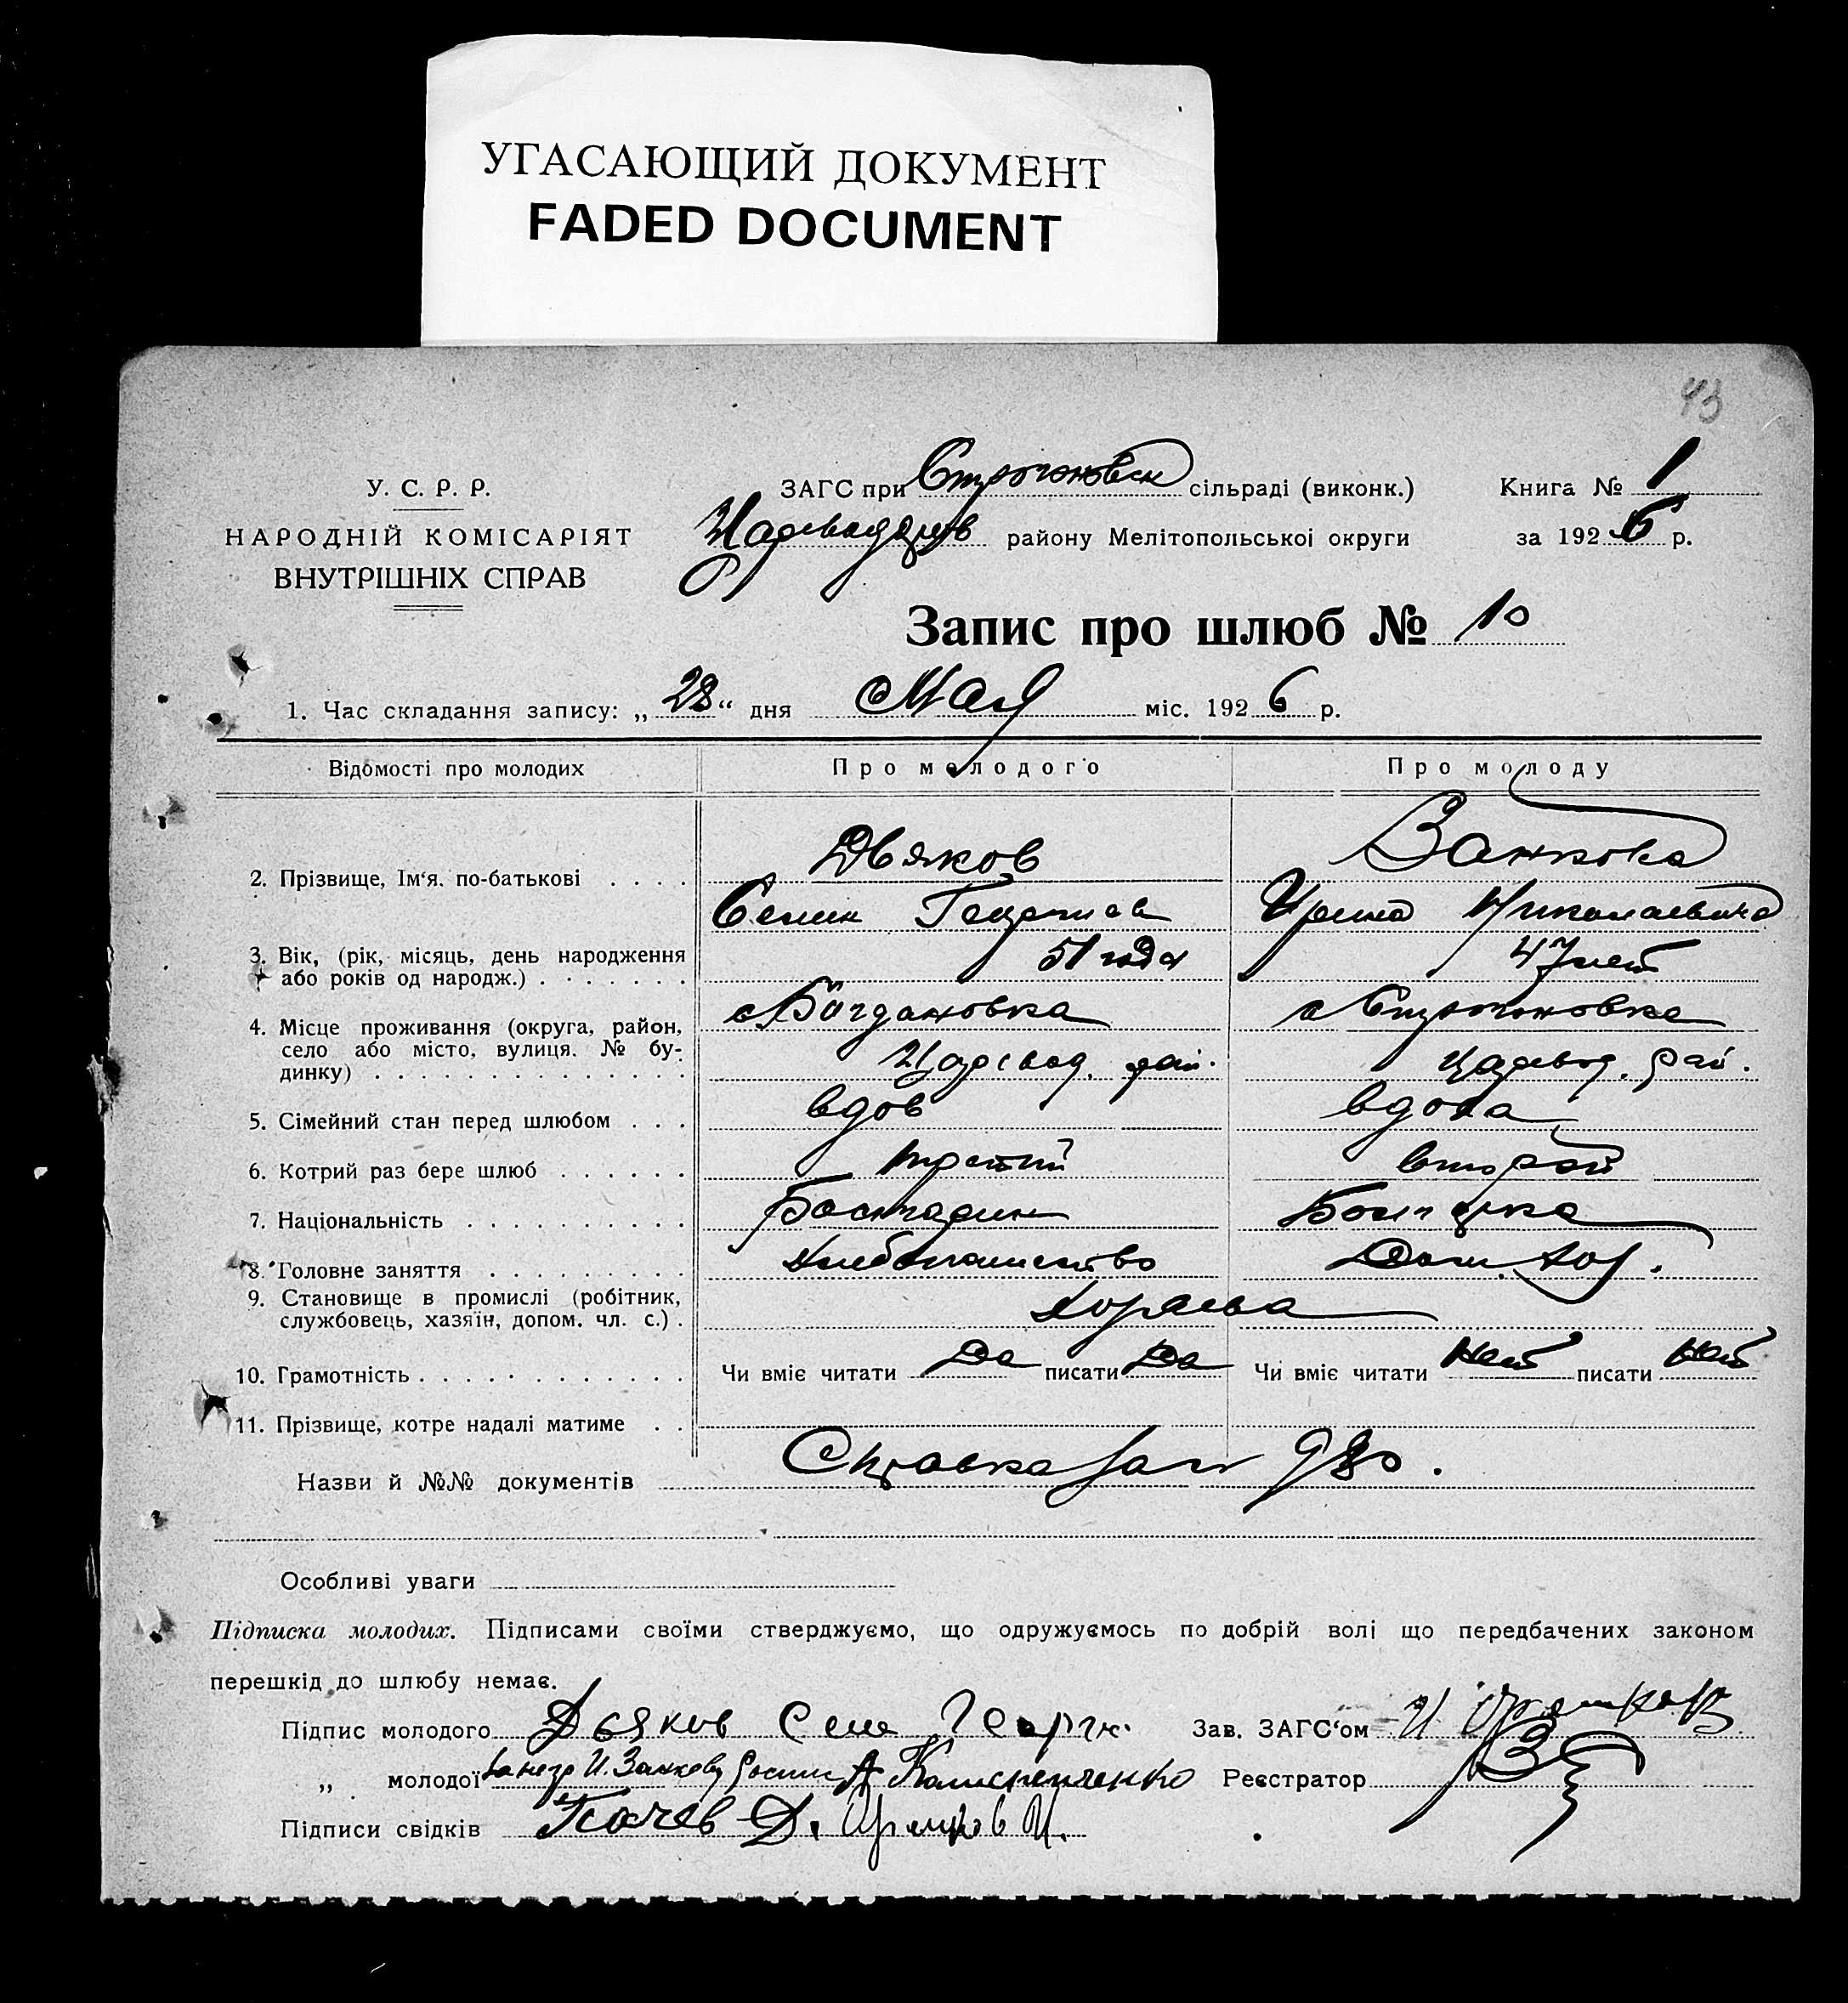 УГАСАЮЩИЙ ДОКУМЕНТ
FADED DOCUMENT
43
У. С. Р. Р.
НАРОДНІЙ КОМІСАРІЯТ
ВНУТРІШНІХ СПРАВ
ЗАГС при Строгоновск сільраді (виконк.) Книга № 1
району Мелітопольської округи за 1926 р.
Запис про шлюб № 10
1. Час складання запису: „28“ дня Мая міс. 1926 р.
Відомості про молодих Про молодого Про молоду
2. Прізвище, Ім‘я. по-батькові Дьяков Занкова
Семен Георгиев Ирина Николаевна
3. Вік, (рік, місяць, день народження 51 года 47 лет
або років од народж.)
4. Місце проживання (округа, район, с Богдановка с Строгоновка
село або місто, вулиця. № бу-
динку) Царевод. рай. Царевод. рай.
5. Сімейний стан перед шлюбом вдов вдова
6. Котрий раз бере шлюб третий второй
7. Національність Болгарин Болгарка
8. Головне заняття Хлебопашество Дом. хоз.
9. Становище в промислі (робітник,
службовець, хазяїн, допом. чл. с.) Хозяева
10. Грамотність Чи вміє читати Да писати Да Чи вміє читати Нет писати Нет
11. Прізвище, котре надалі матиме
Назви й №№ документів Справка за № 980.
Особливі уваги
Підписка молодих. Підписами своїми стверджуємо, що одружуємось по добрій волі що передбачених законом
перешкід до шлюбу немає.
Підпис молодого Дьяков Семе Георги. Зав. ЗАГС‘ом
„ молодої И. Занкову Реєстратор
Підписи свідків Д.